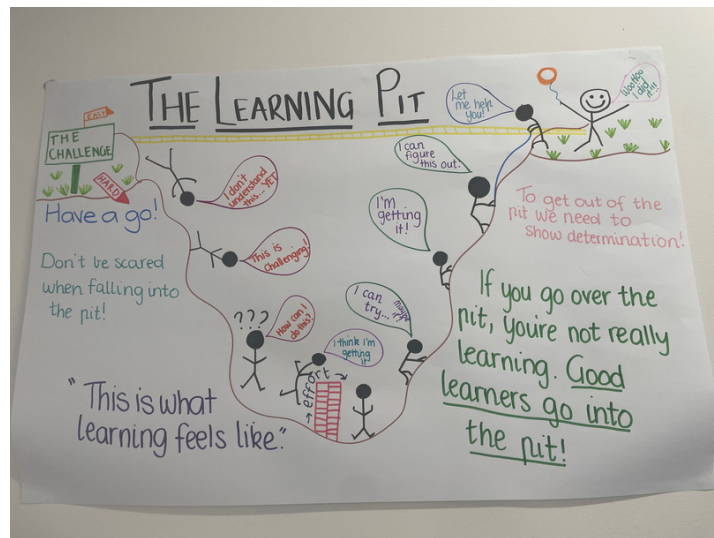 THE LEARNING PIT
EASY
THE
CHALLENGE
HARD
Have a go!
Don't be scared
when falling into
the pit!
"This is what
learning feels like."
I don't
understand
this... YET
This is
Challenging!
???
How can I
do this?
I think I'm
getting
it
effort
I can
try...
maybe
I'm
getting
it!
I can
figure
this out!
Let
me help
you!
WooHoo
I did
it!!!
To get out of the
pit we need to
show determination!
If you go over the
pit, you're not really
learning. Good
learners go into
the pit!